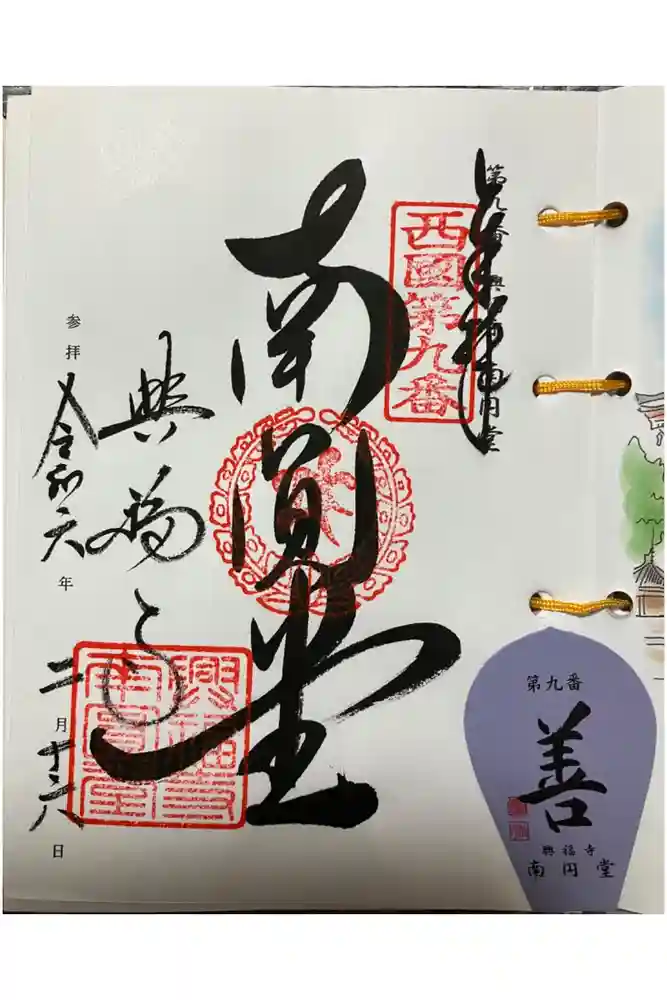 第九番 興福寺南円堂
奉拝
西國第九番
南圓堂
興福寺
興福寺
南圓堂
参拝 令和六年 二月十六日
第九番
善
興福寺
南円堂